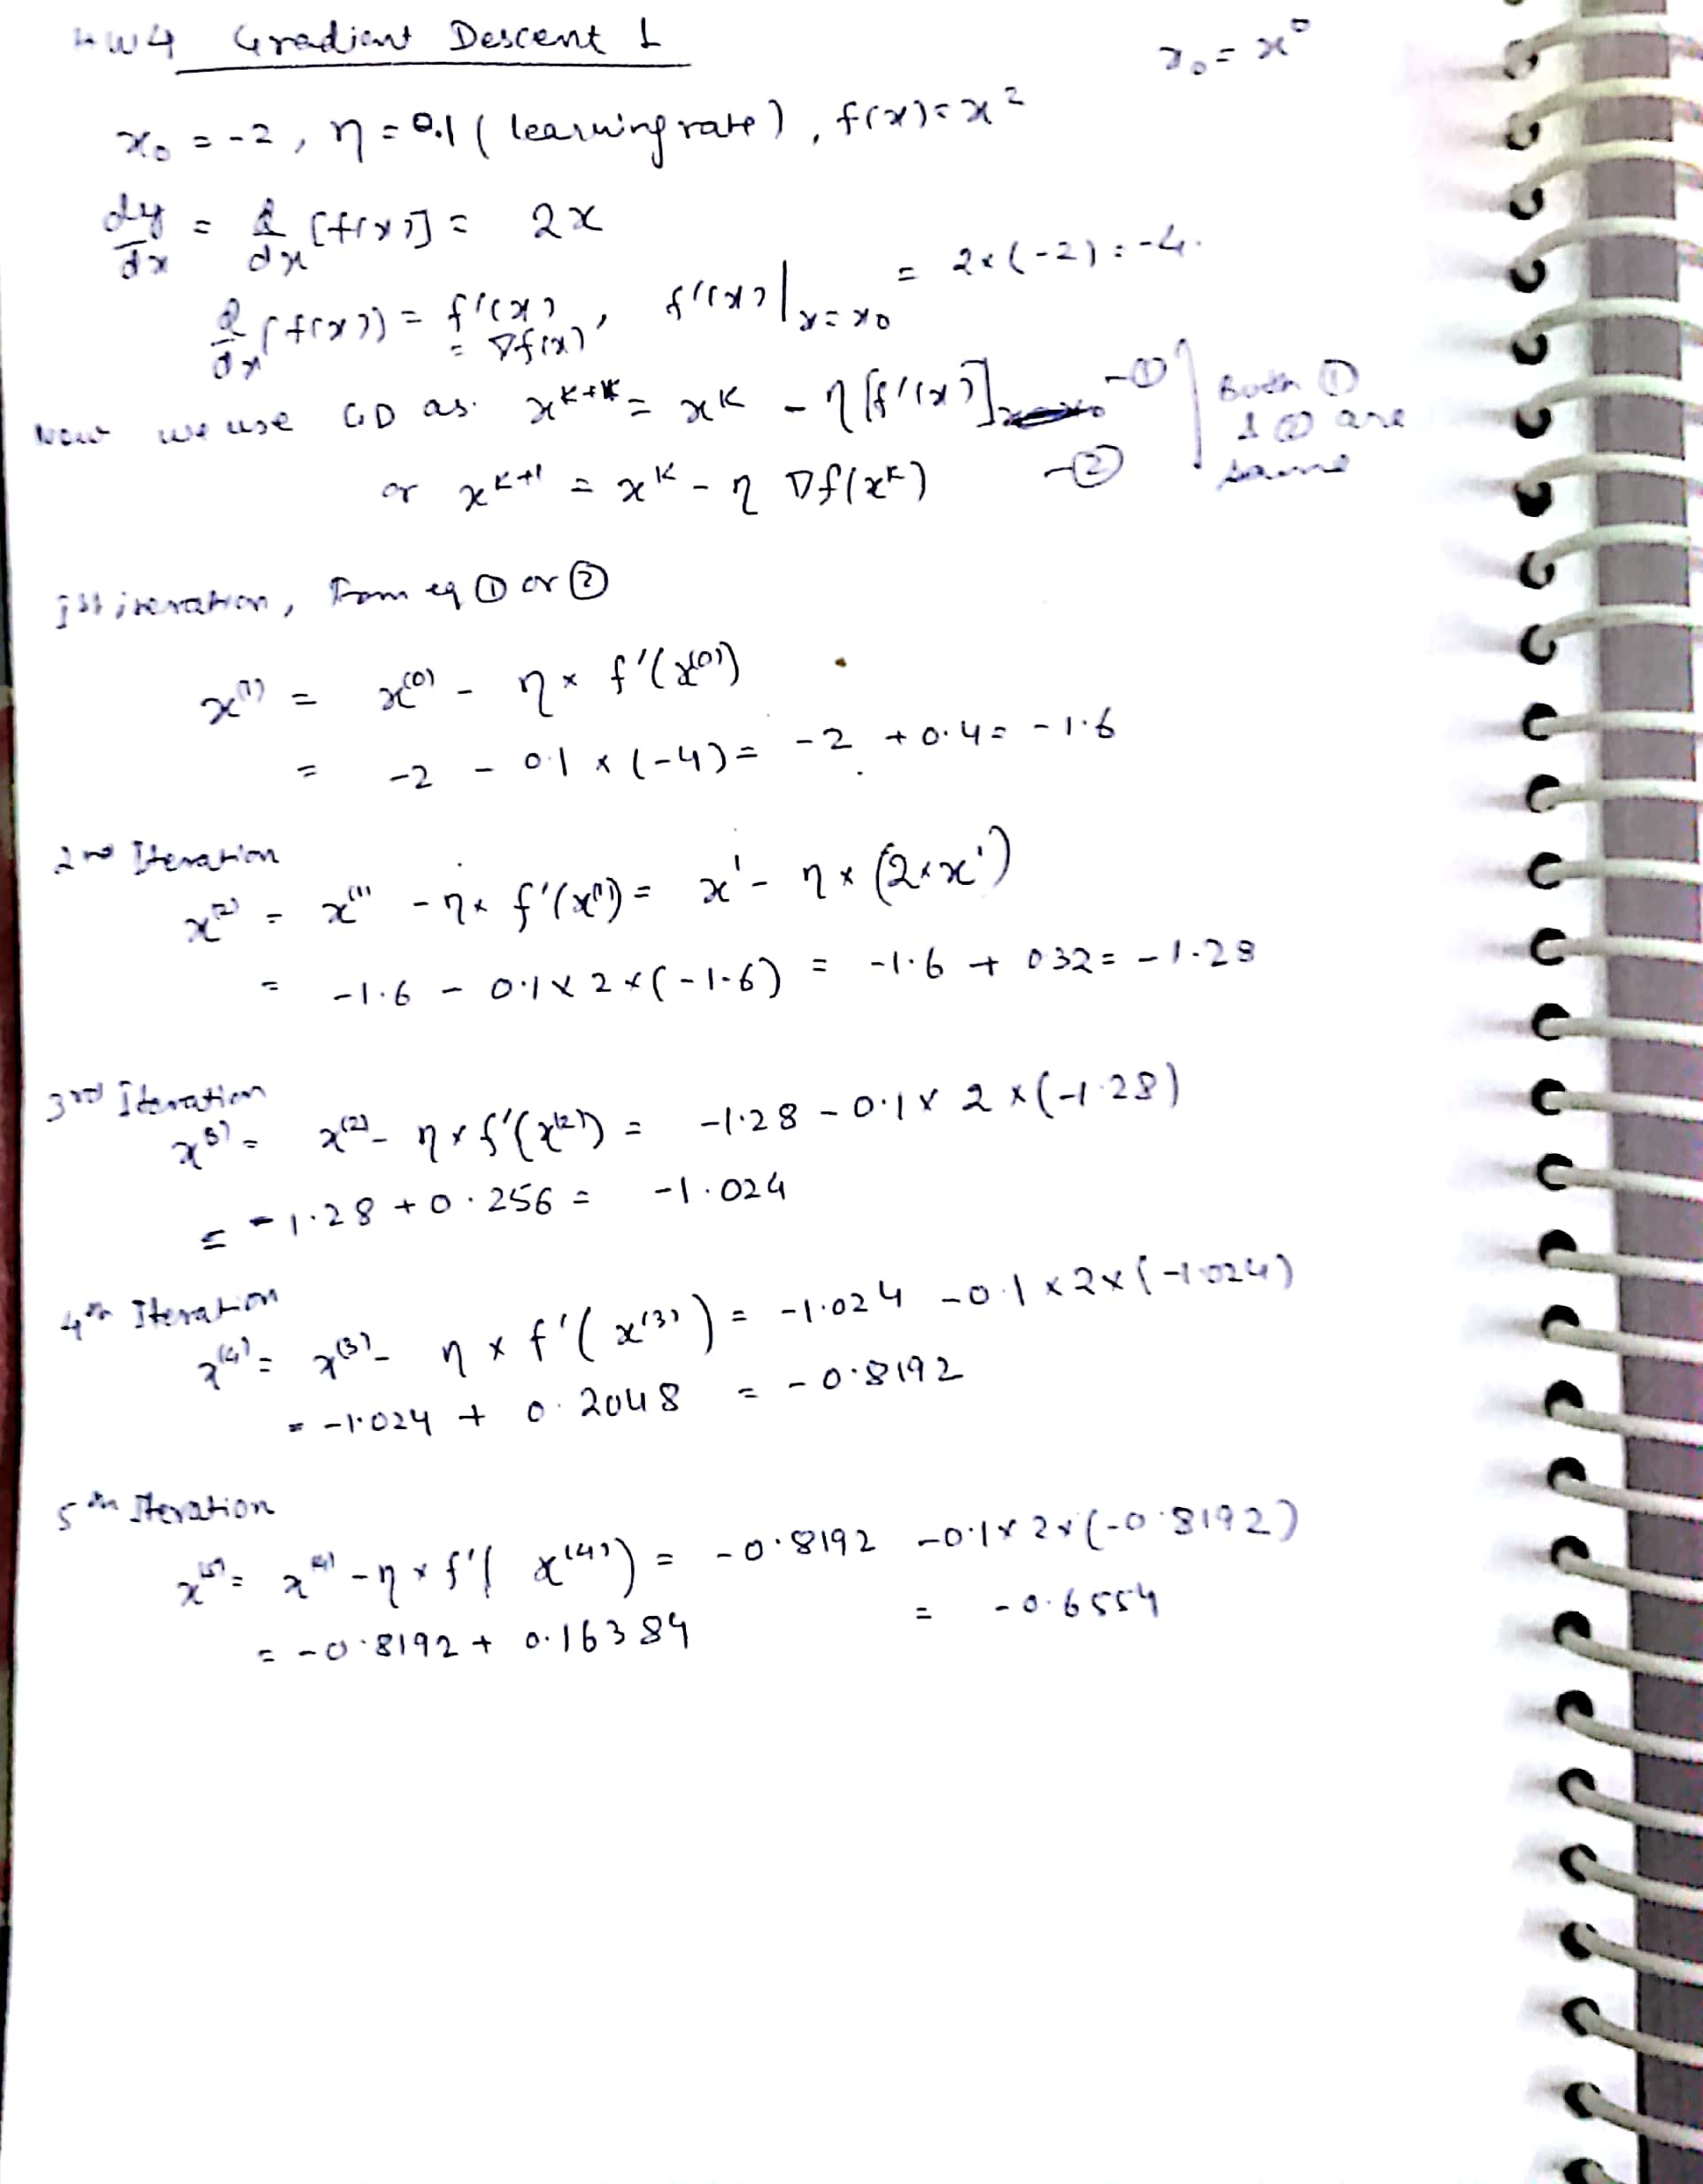 HW4 Gradient Descent 1
x₀ = x⁰
x₀ = -2, η = 0.1 ( learning rate ), f(x) = x²
dy/dx = d/dx [f(x)] = 2x
d/dx (f(x)) = f'(x) = ∇f(x), f'(x)|ₓ₌ₓ₀ = 2×(-2) = -4.
Now we use GD as. xᴷ⁺¹ = xᴷ - η [f'(x)] -①
or xᴷ⁺¹ = xᴷ - η ∇f(xᴷ) -②
Both ①
& ② are
same
1st iteration, From eq ① or ②
x⁽¹⁾ = x⁽⁰⁾ - η × f'(x⁽⁰⁾)
= -2 - 0.1 × (-4) = -2 + 0.4 = -1.6
2nd Iteration
x⁽²⁾ = x⁽¹⁾ - η × f'(x⁽¹⁾) = x¹ - η × (2×x¹)
= -1.6 - 0.1 × 2 × (-1.6) = -1.6 + 0.32 = -1.28
3rd Iteration
x⁽³⁾ = x⁽²⁾ - η × f'(x⁽²⁾) = -1.28 - 0.1 × 2 × (-1.28)
= -1.28 + 0.256 = -1.024
4th Iteration
x⁽⁴⁾ = x⁽³⁾ - η × f'( x⁽³⁾ ) = -1.024 - 0.1 × 2 × (-1.024)
= -1.024 + 0.2048 = -0.8192
5th Iteration
x⁽⁵⁾ = x⁽⁴⁾ - η × f'( x⁽⁴⁾ ) = -0.8192 - 0.1 × 2 × (-0.8192)
= -0.8192 + 0.16384 = -0.6554